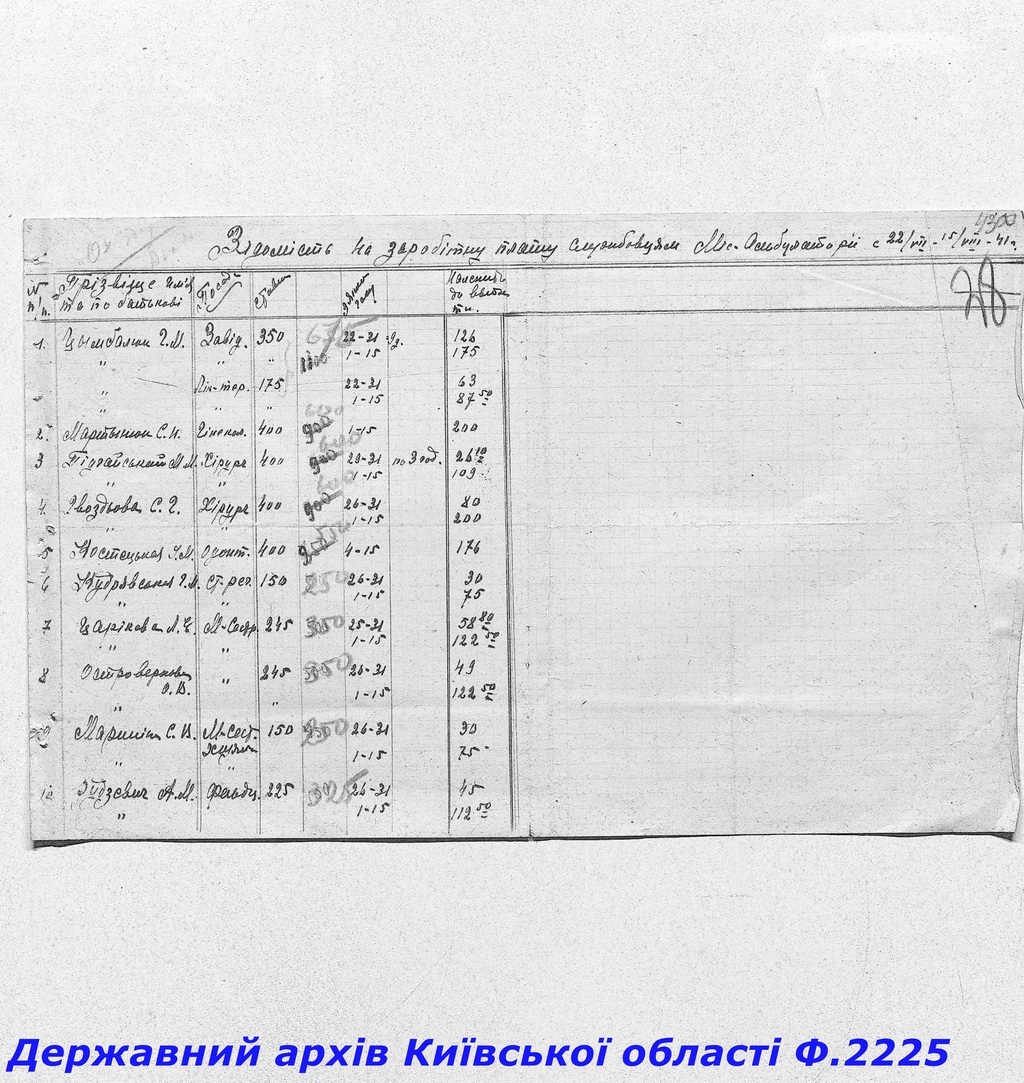 4300
Відомість на заробітну плату службовцям Міс. Амбулаторії с 22/VII - 15/VIII - 41 р.
28
№ п/п. Прізвище ім'я та по батькові Посада Ставка Належить до випла ти.
1. Цымбалюк Г.М. Завід. 350 675 22-31 126
" " " 1100 1-15 175
" Лік-тер. 175 22-31 63
" " " 1-15 87 50
600
2. Мартынюк С.Н. Гінекол. 400 900 1-15 200
600
3 Підгайський М.М. Хірург 400 900 29-31 по 3 год. 26 10
" 1-15 109
600
4. Гвоздьова С.Г. Хірург 400 900 26-31 80
" " 1-15 200
5 Костецькая Г.М. Одонт. 400 4-15 176
6 Кудрявська Г.М. Ст. рег. 150 250 26-31 30
" 1-15 75
7 Царікова Л.Є. М-Сестр. 245 350 25-31 58 80
" " 1-15 122 50
8 Островерхова О.В. " 245 350 26-31 49
" " 1-15 122 50
9 Мариніч С.В. М-Сест. 150 250 26-31 30
" " 1-15 75-
10 Гудзевич А.М. Фельдш. 225 325 26-31 45
" 1-15 112 50
Державний архів Київської області Ф.2225